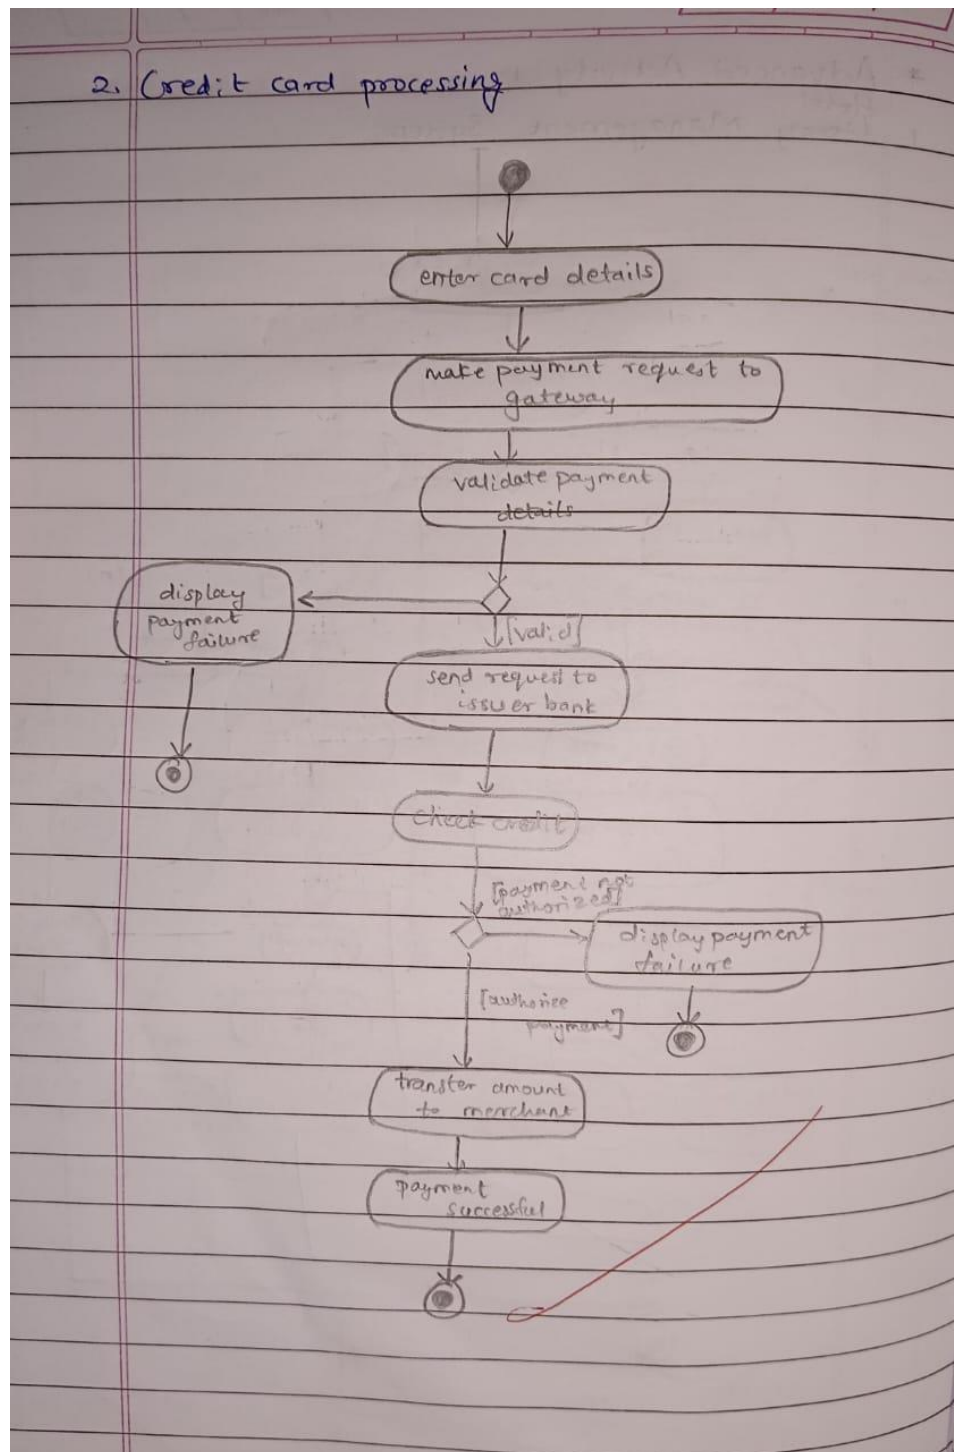 2. Credit card processing
enter card details
make payment request to
gateway
validate payment
details
display
payment
failure
[valid]
send request to
issuer bank
check credit
[payment not
authorized]
display payment
failure
[authorize
payment]
transfer amount
to merchant
payment
successful